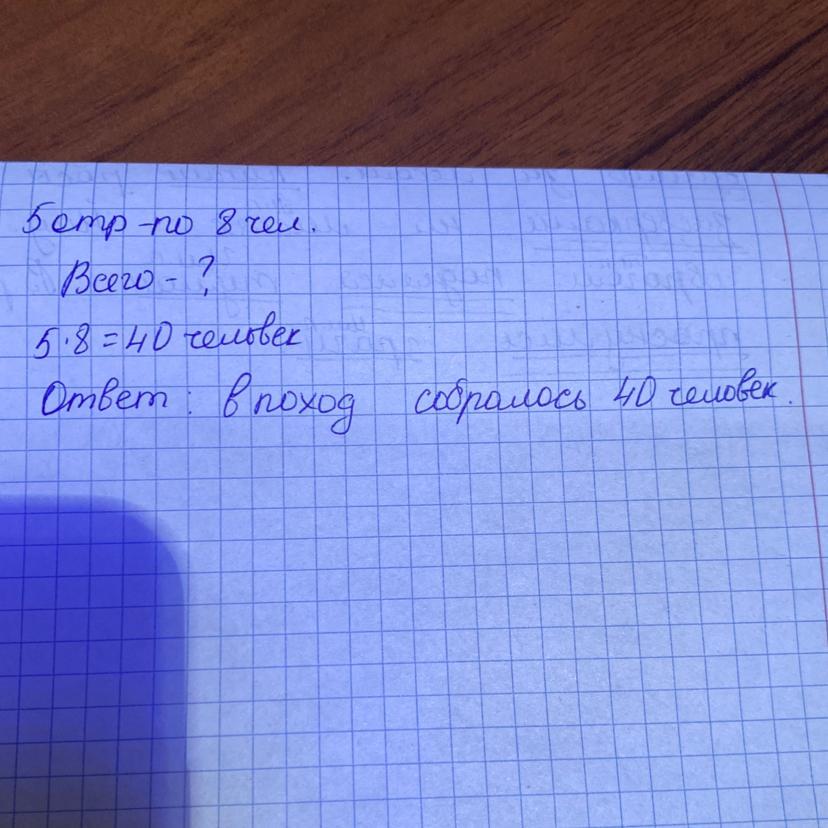 5 отр - по 8 чел.
Всего - ?
5·8=40 человек
Ответ: в поход собралось 40 человек.